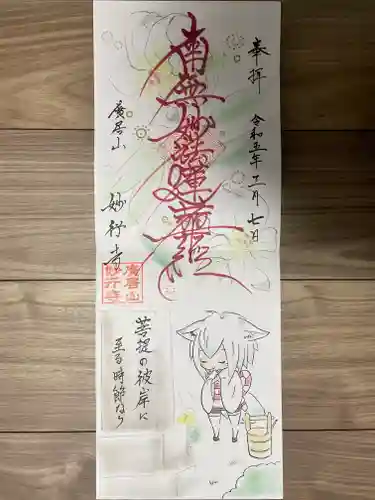 奉拝
令和五年十二月七日
南無妙法蓮華経
廣居山
妙行寺
廣居山
妙行寺
菩提の彼岸に
至る時節なり